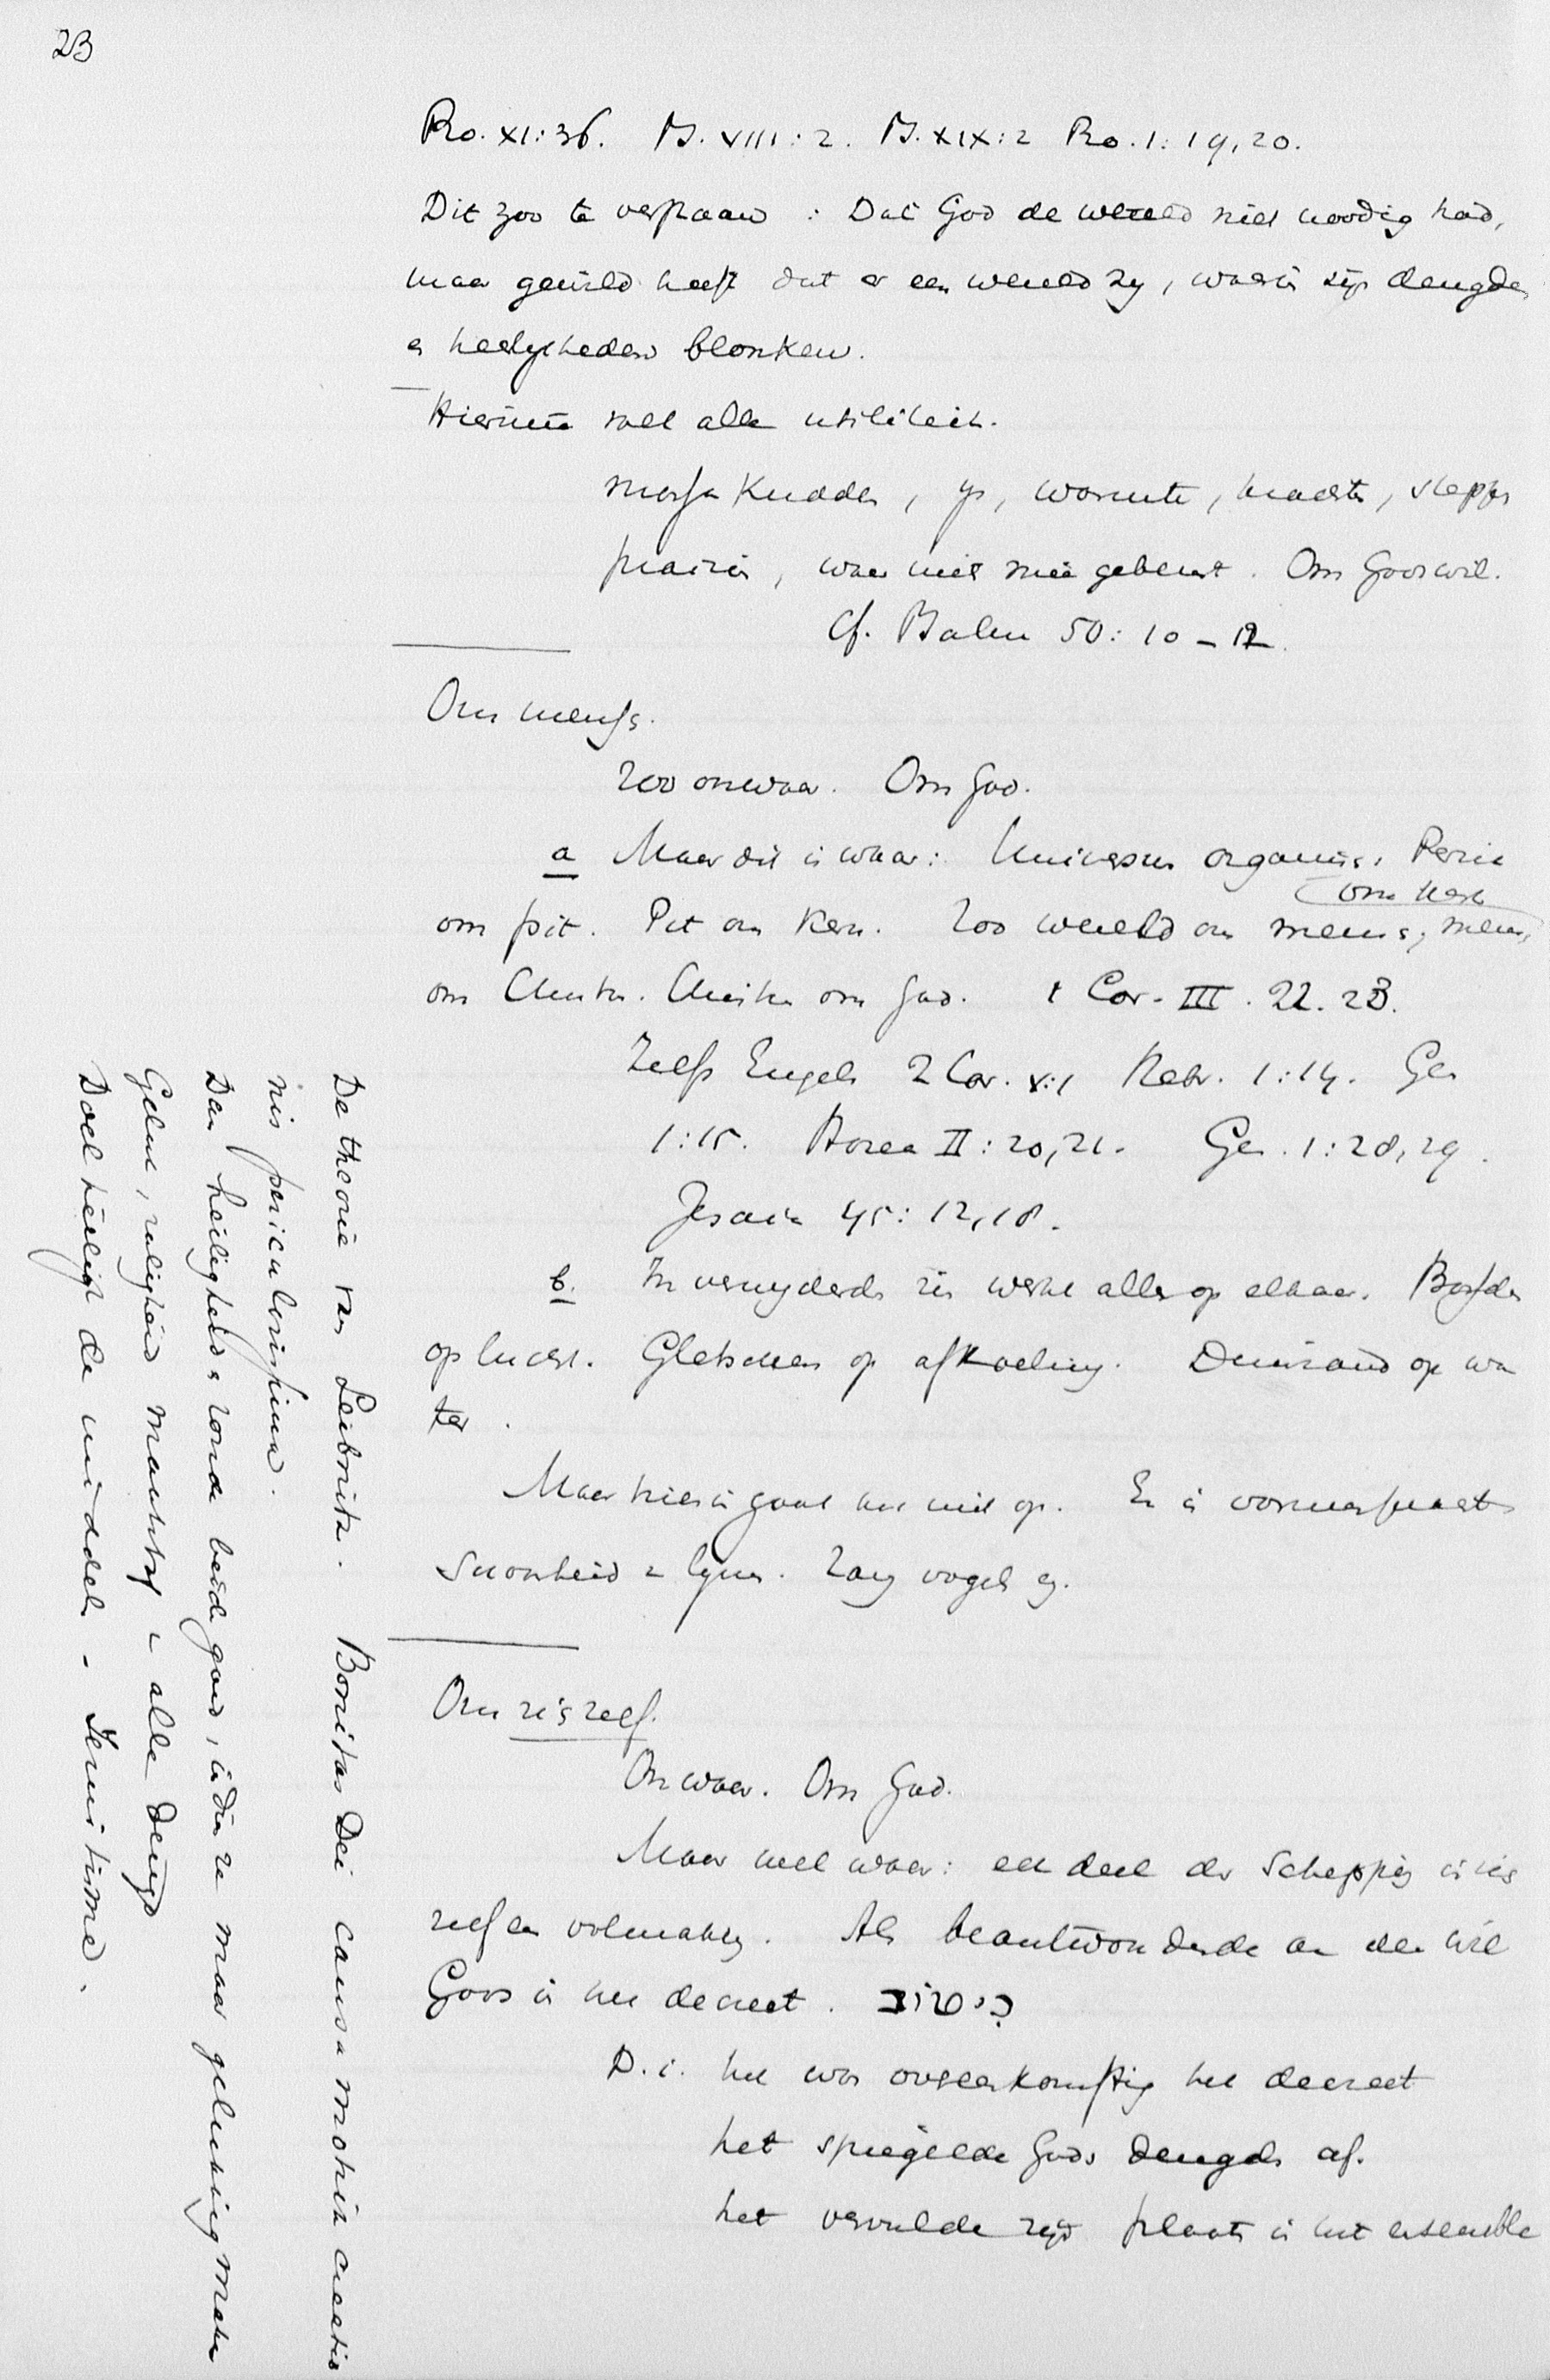 23
Ro. XI:36. Ps. VIII:2. Ps. XIX:2 Ro. 1:19,20.
Dit zoo te verstaan : Dat God de wereld niet noodig had,
maar gewild heeft dat er een wereld zij, waarin zijn deugden
en heerlijkheden blonken.
Hierme valt alle utiliteit.
kudden, ijs, warmte, steppen
prairien, waar niet mee gebeurt. Om Gods wil.
Cf. Psalm 50:10-12.
Om mensch.
Zoo onwaar. Om God.
a Maar dit is waar: Universum organisch.
om kerk
om pit. Pit om kern. Zoo wereld om mensch, mensch
om Christus. Christus om God. 1 Cor. III. 22. 23.
Zelfs Engelen 2 Cor. V:1 Hebr. 1:14. Gen
1:15. Hosea II:20,21. Gen. 1:28,29.
Jesaia 45:12,18.
b. In verwijderde zin werkt alles op elkaar. Bosschen
op lucht. Gletschers op afkoeling. Duinzand op wa
ter.
Maar hierin gaat het niet op. Er is vormenpracht
Schoonheid en lijnen. Zang vogels ej.
Om zich zelf.
Onwaar. Om God.
Maar wel waar: elk deel der Schepping is in zich
zelf en volmaking. Als beantwoordende aan den wil
Gods in het decreet. כי־טוב
D.i. het was overeenkomstig het decreet
het spiegelde Gods deugden af.
het vervulde zijn plaats in het ensemble
De theorie van Leibnitz. Bonitas Dei causa motrix creatio
nis periculosissima.
Dan heiligheid en zonde beide goed, indien ze maar gelukkig maken
Geluk, zaligheid maatstaf van alle deugd
Doel heiligt de middelen - Jesuitisme.